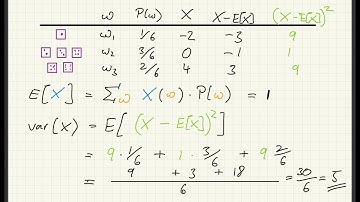 ω P(ω) X X-E[X] (X-E[X])²
ω₁ 1/6 -2 -3 9
ω₂ 3/6 0 -1 1
ω₃ 2/6 4 3 9
E[X] = Σω X(ω) · P(ω) = 1
var(X) = E[(X-E[X])²]
= 9 · 1/6 + 1 · 3/6 + 9 2/6
= (9 + 3 + 18)/6 = 30/6 = 5